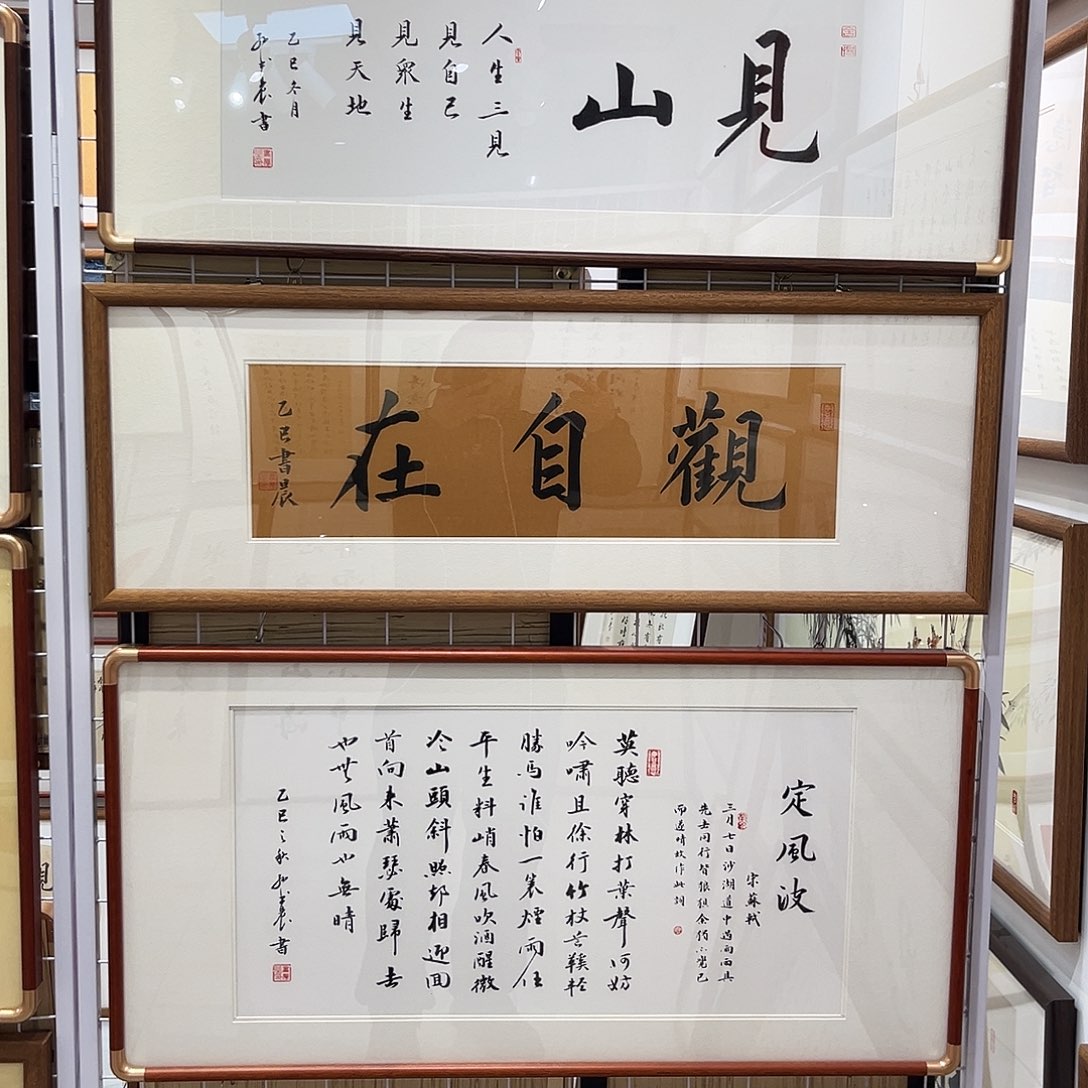 見山
人生三見
見自己
見衆生
見天地
乙巳冬月
書
觀自在
乙巳書晨
定風波
宋蘇軾
三月七日沙湖道中遇雨雨具
先去同行皆狼狽余獨不覺已
而遂晴故作此詞
莫聽穿林打葉聲何妨
吟嘯且徐行竹杖芒鞵輕
勝馬誰怕一蓑煙雨任
平生料峭春風吹酒醒微
冷山頭斜照却相迎回
首向來蕭瑟處歸去
也無風雨也無晴
乙巳之秋
書